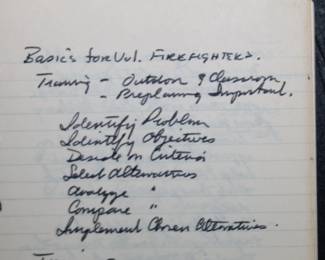 Basic's for Vol. FIREFIGHTERS.
Training - Outdoor & Classroom
- Preplanning Important.
Identify Problem
Identify Objectives
Decide on Criteria
Select Alternatives
Analyze "
Compare "
Implement Chosen Alternatives.